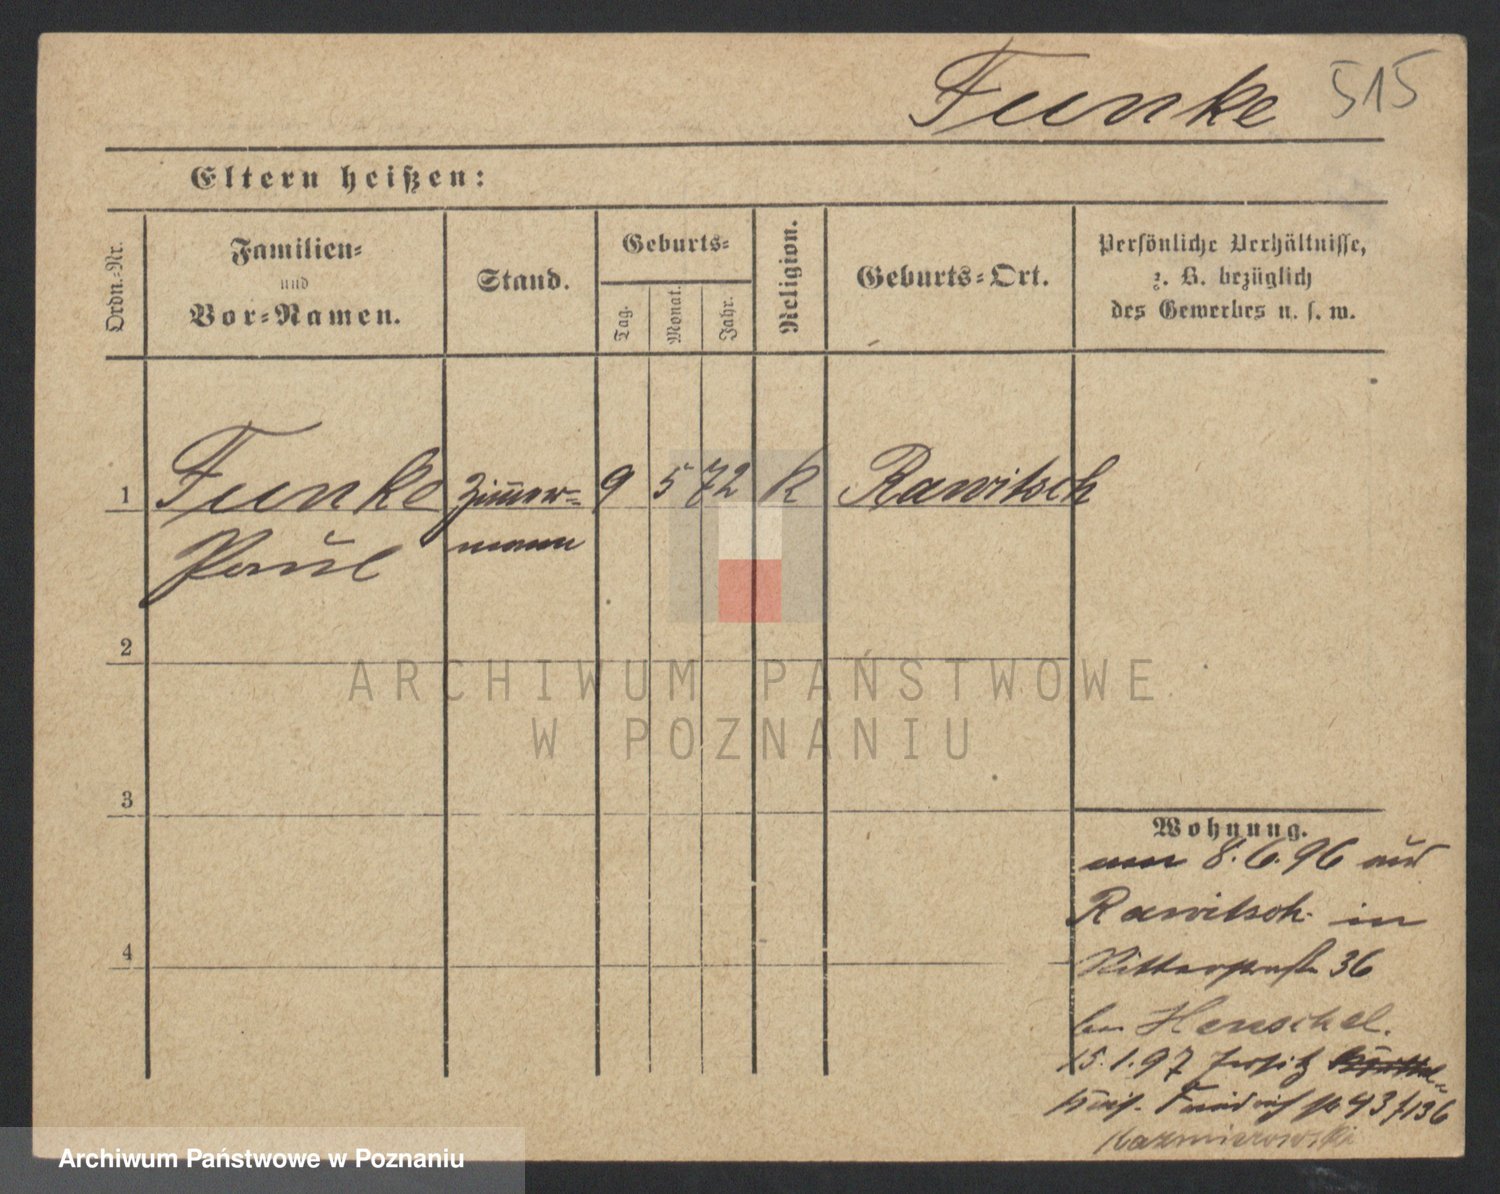 Funke 515
Eltern heißen:
Ordn.-Nr.
Familien-
und
Vor-Namen.
Stand.
Geburts-
Tag.
Monat.
Jahr.
Religion.
Geburts-Ort.
Persönliche Verhältnisse,
z. B. bezüglich
des Gewerbes u. s. w.
1 Funke Zimmer- 9 5 72 K Rawitsch
Paul mann
2
ARCHIWUM PAŃSTWOWE
W POZNANIU
3
Wohnung.
8.6.96 aus
Rawitsch in
Ritterstraße 36
bei Henschel.
15.1.97
Friedrichstr 43/136
Kazmierowski
4
Archiwum Państwowe w Poznaniu